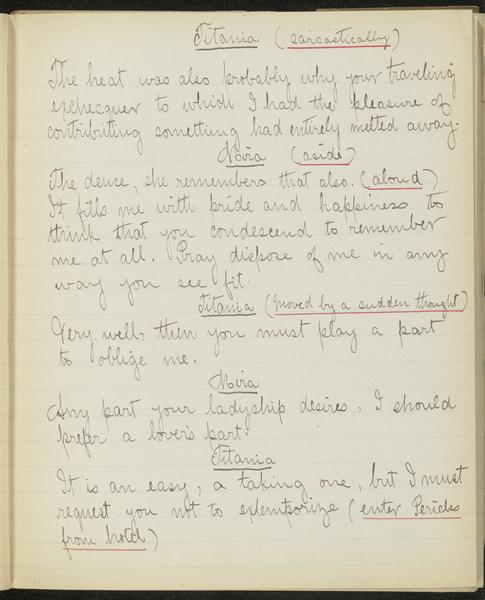 Titania (sarcastically)
The heat was also probably why your traveling
exchequer to which I had the pleasure of
contributing something had entirely melted away.
Mira (aside)
The deuce, she remembers that also. (aloud)
It fills me with pride and happiness to
think that you condescend to remember
me at all. Pray dispose of me in any
way you see fit.
Titania (moved by a sudden thought)
Very well, then you must play a part
to oblige me.
Mira
Any part your ladyship desires, I should
prefer a lover's part.
Titania
It is an easy, a taking one, but I must
request you not to extemporize (enter Pericles
from hotel)